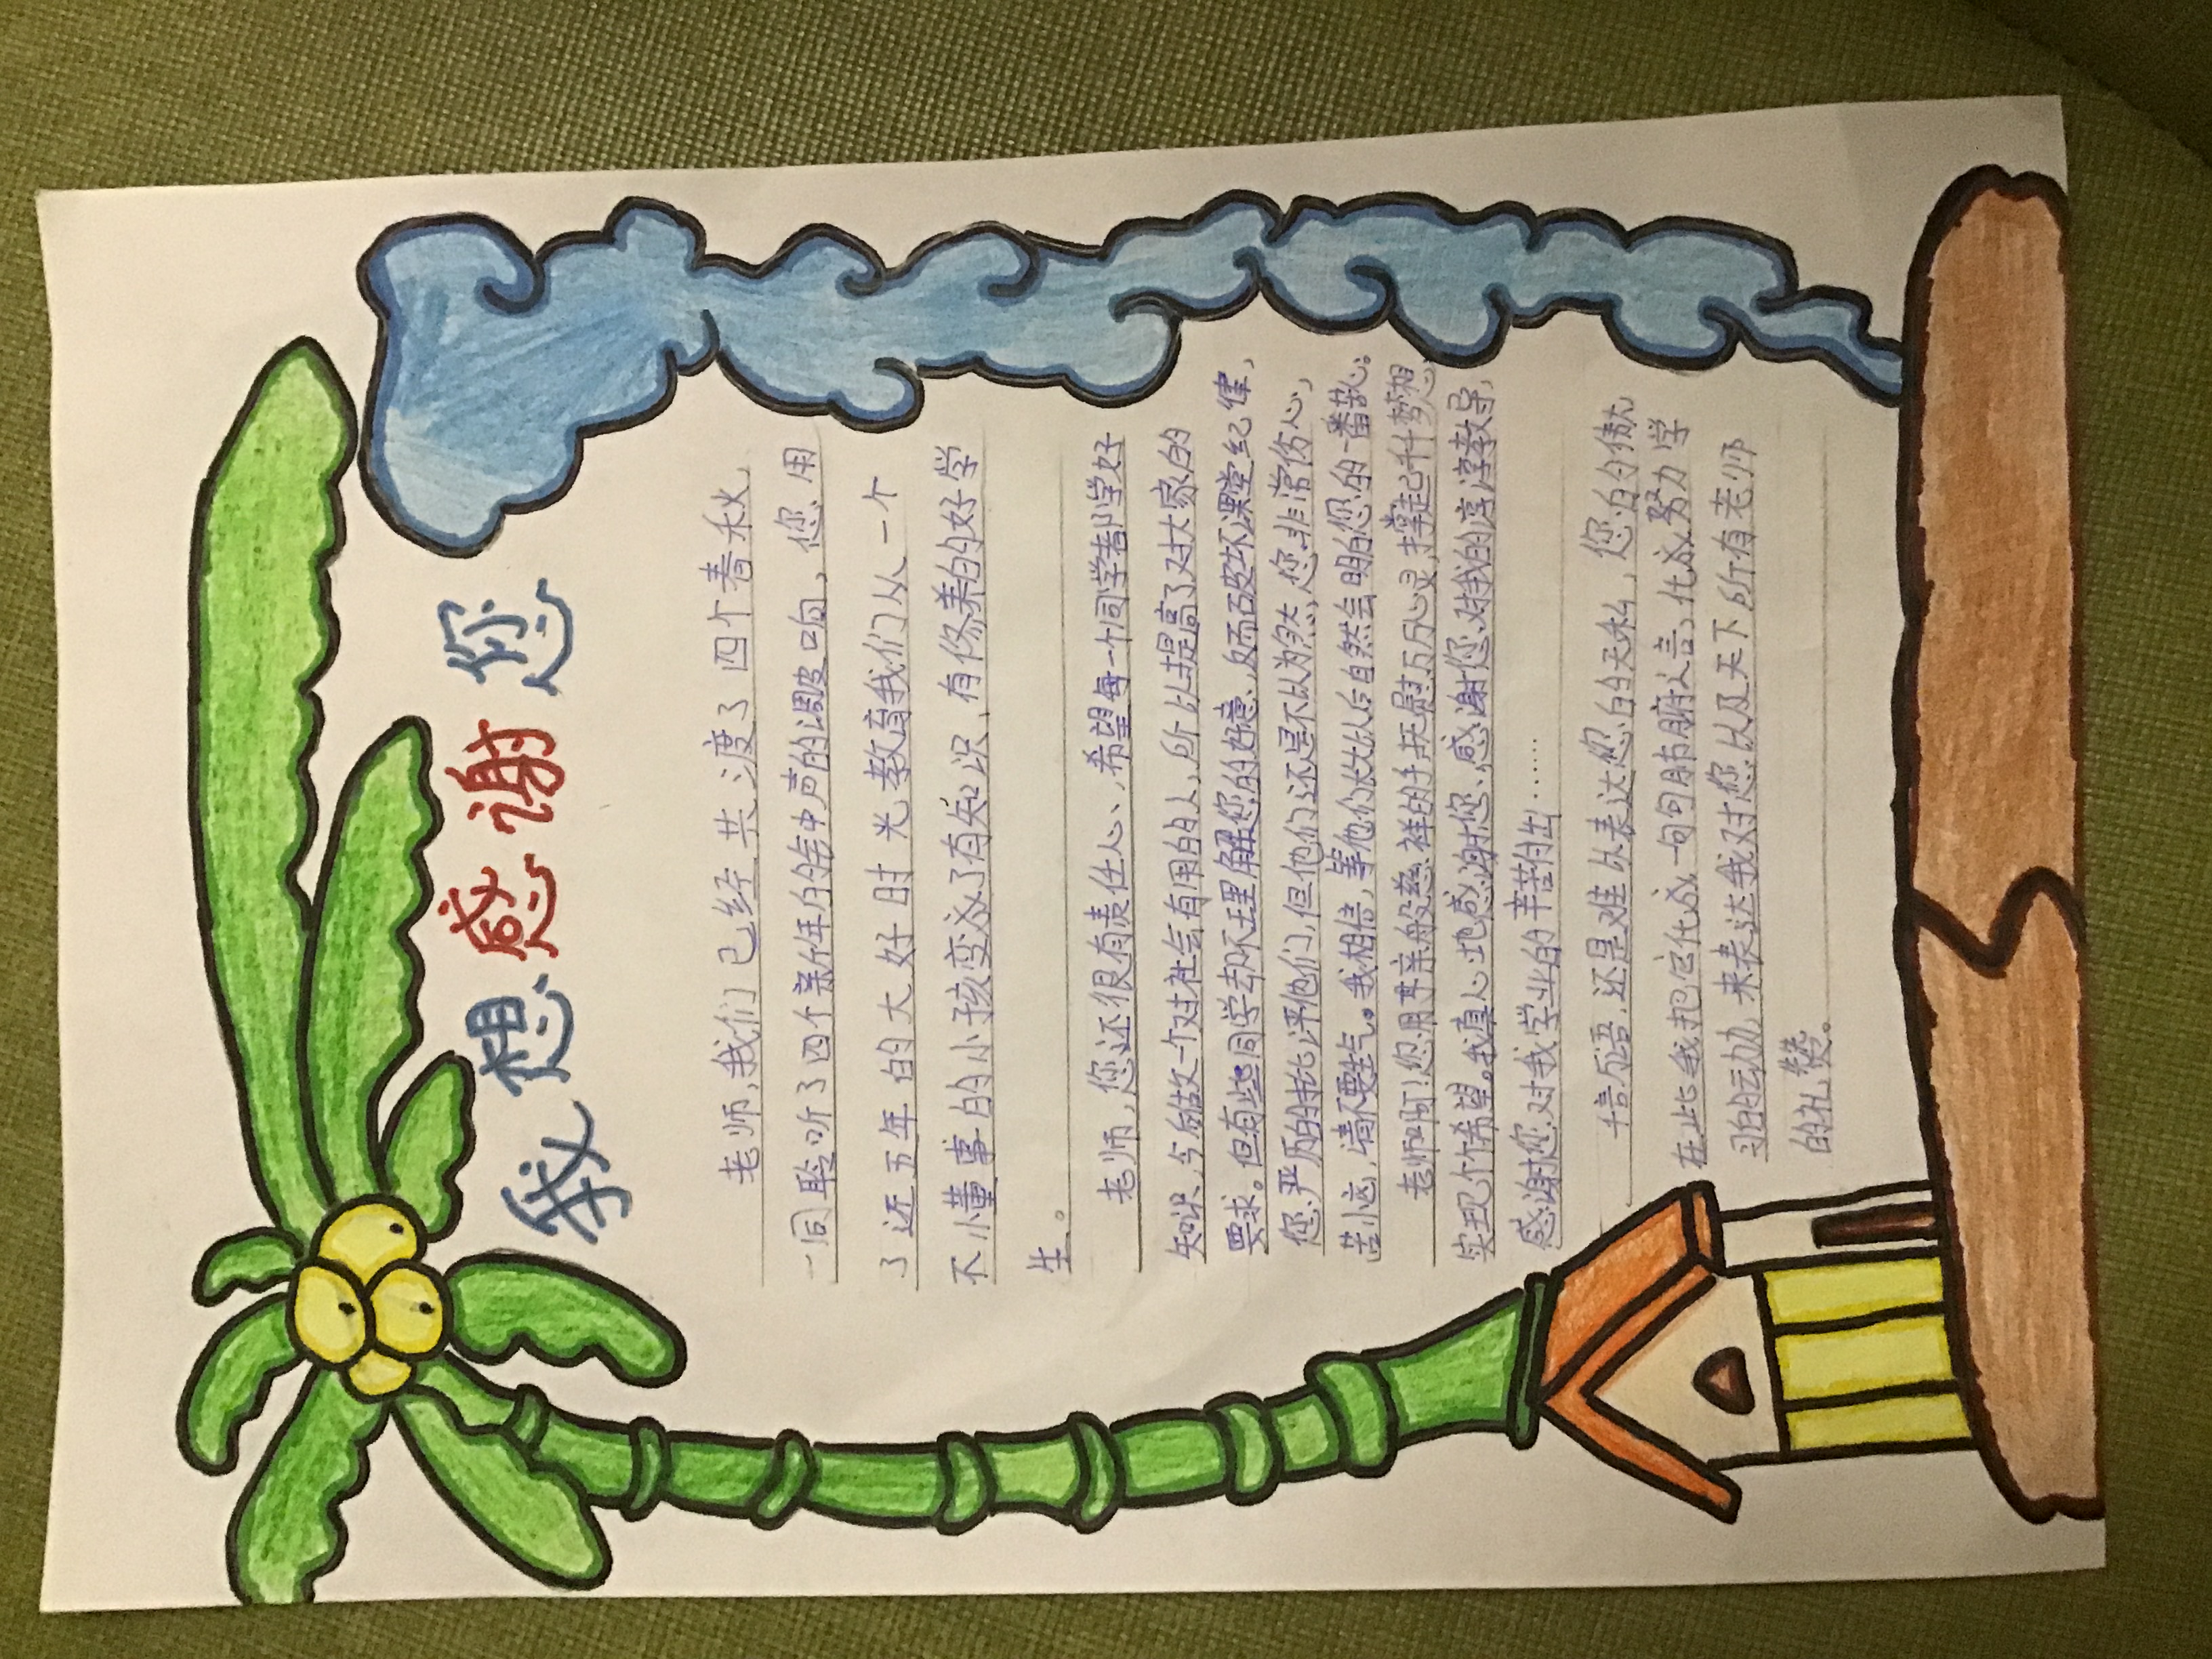 我想感谢您
老师,我们已经共渡了四个春秋,
一同聆听了四个新年的钟声的调皮响,您用
了近五年的大好时光教育我们从一个
不小懂事的小孩变成了有知识,有修养的好学
生。
老师,您还很有责任心、希望每一个同学都学好
知识,今后做一个对社会有用的人,所以提高了对大家的
要求。但有些同学却不理解您的好意,反而破坏课堂纪律,
您严厉的批评他们,但他们还是不以为然,您非常伤心,
苦恼,请不要生气。我相信,等他们长大以后自然会明白您的一番苦心。
老师啊!您用母亲般慈祥的手抚慰万万心灵,撑起千千梦想,
实现个个希望。我真心地感谢您,感谢您对我的淳淳教导,
感谢您对我学业的辛苦付出……
千言万语,还是难以表达您的无私,您的
在此我把它化成一句句肺腑之言,化成努力学
习的动力,来表达我对您以及天下所有老师
的礼赞。